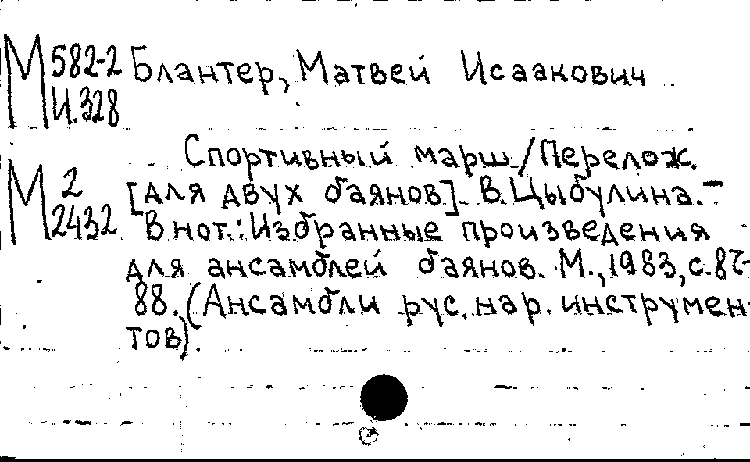 М 582-2 Блантер, Матвей Исаакович
И.328
Спортивный марш / Перелож.
М 2 [для двух баянов] В. Цыбулина. –
2432 В нот.: Избранные произведения
для ансамблей баянов. М., 1983, с.
88. (Ансамбли рус. нар. инструмен-
тов).